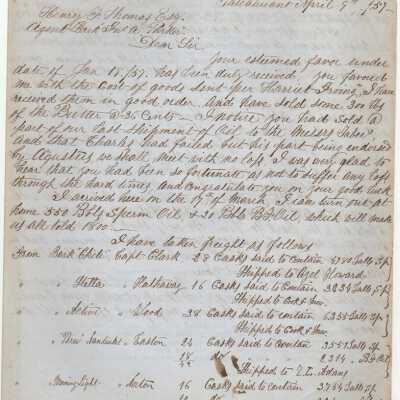 Talcahuano April 9th /57
Henry F Thomas Esq.
Agent Bark
Dear Sir.
Your esteemed favor under
date of Jan 15/57. has been duly received, you favored
me with the Cost of goods sent per Harriet Irving, I have
received them in good order, And have sold some 300 lbs
of the Butter @ 36 Cents – I notice you had sold a
part of our last shipment of Oil to the Messrs
And that Charles had failed but his part being endorsed
by we shall meet with no loss. I was very glad to
hear that you had been so fortunate as not to suffer any loss
through the hard times, And congratulate you on your good luck
I arrived here on the 17th of March, I can turn out at
home 550 Bbls Sperm Oil, & 20 Bbls Oil, which will make
us all told 1800 –
I have taken freight as follows
From Bark Chili Capt. Clark 28 Casks said to contain Galls Sp
Shipped to Howard
" " Hathaway 16 Casks said to Contain 3234 Galls Sp
Shipped to Cook &
" Active " Wood 32 Casks said to contain 6355 Galls Sp
Shipped to Cook & Snow
" " Easton 24 Casks said to Contain 3551 Galls Sp
18 do " 2,314
Shipped to Adams
" Morning Light " Norton 16 Casks said to contain 3754 Galls Sp